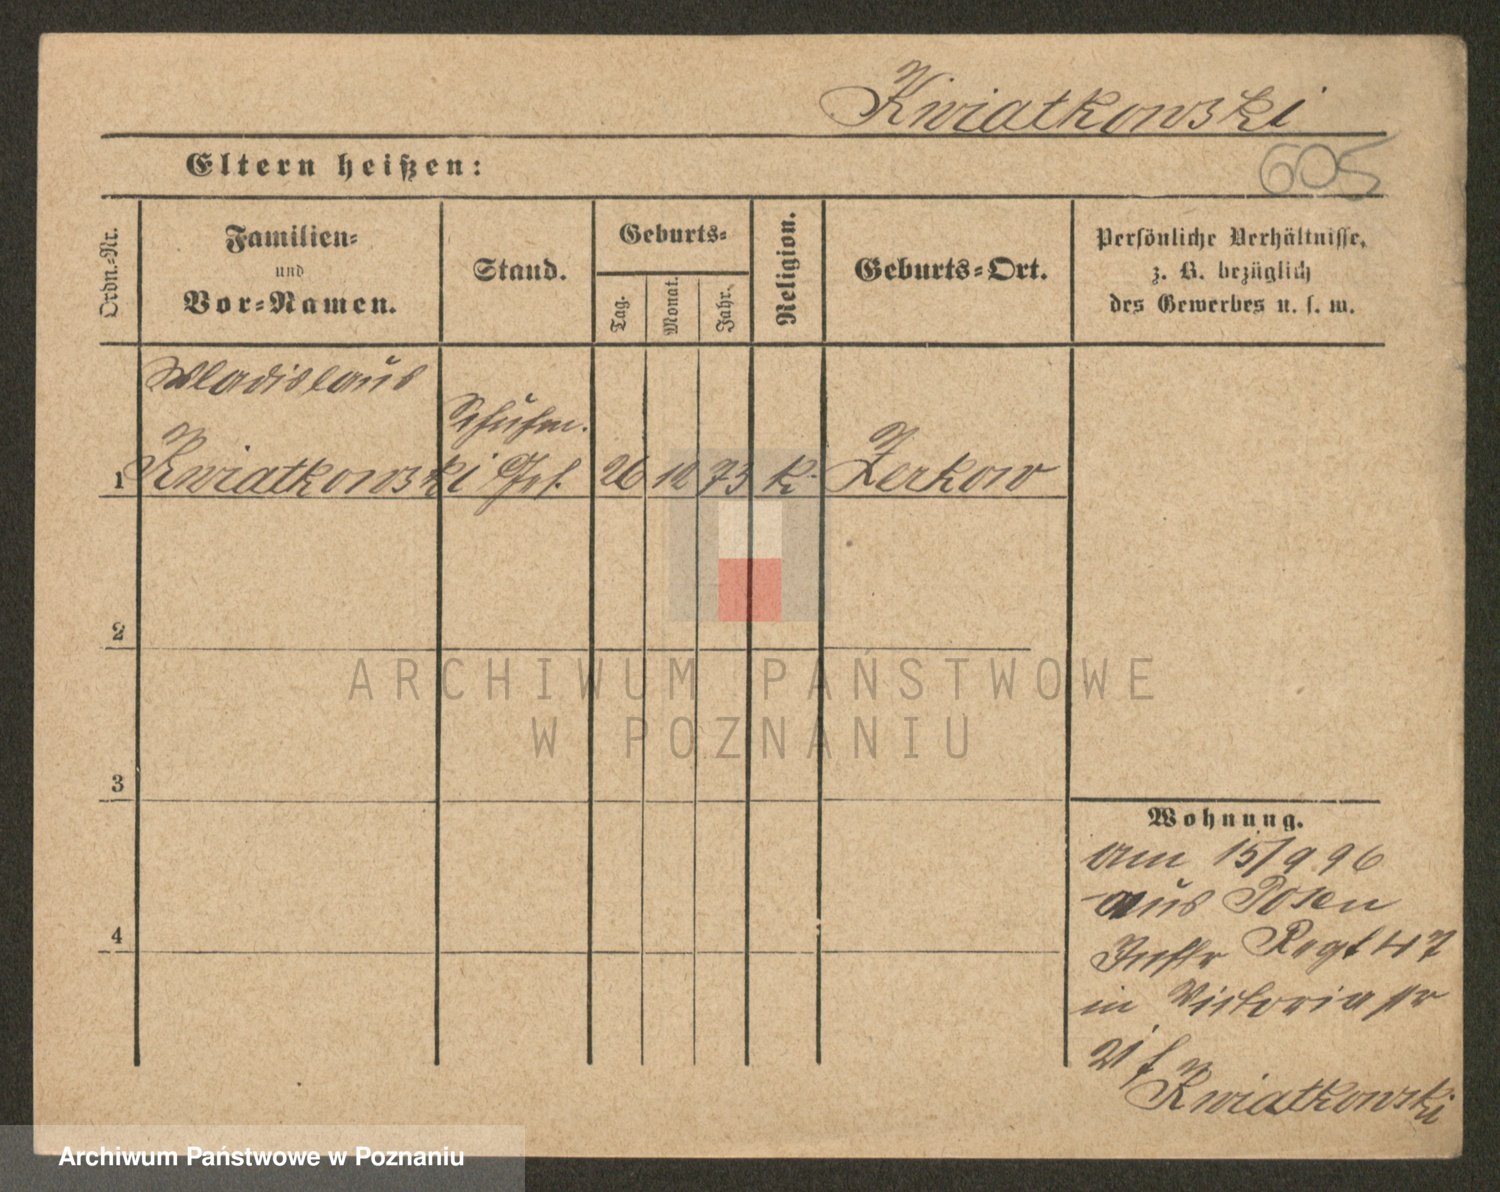 Kwiatkowski
Eltern heißen:
605
Ordn.-Nr.
Familien-
und
Vor-Namen.
Stand.
Geburts-
Tag.
Monat.
Jahr.
Religion.
Geburts-Ort.
Persönliche Verhältnisse,
z. B. bezüglich
des Gewerbes u. s. m.
Wladislaus
Schuhm.
1 Kwiatkowski Ges. 26 10 73 k. Zerkow
2
ARCHIWUM PAŃSTWOWE
W POZNANIU
3
Wohnung.
am 15/9 96
aus Posen
4
Inftr Regt 47
in Victoria str
21 f
Kwiatkowski
Archiwum Państwowe w Poznaniu